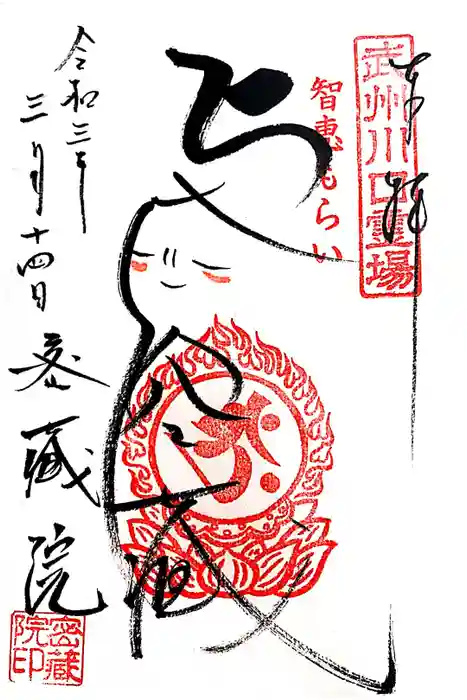 武州川口霊場
奉拝
智恵もらい
令和三年
三月十四日
密蔵院
密蔵
院印